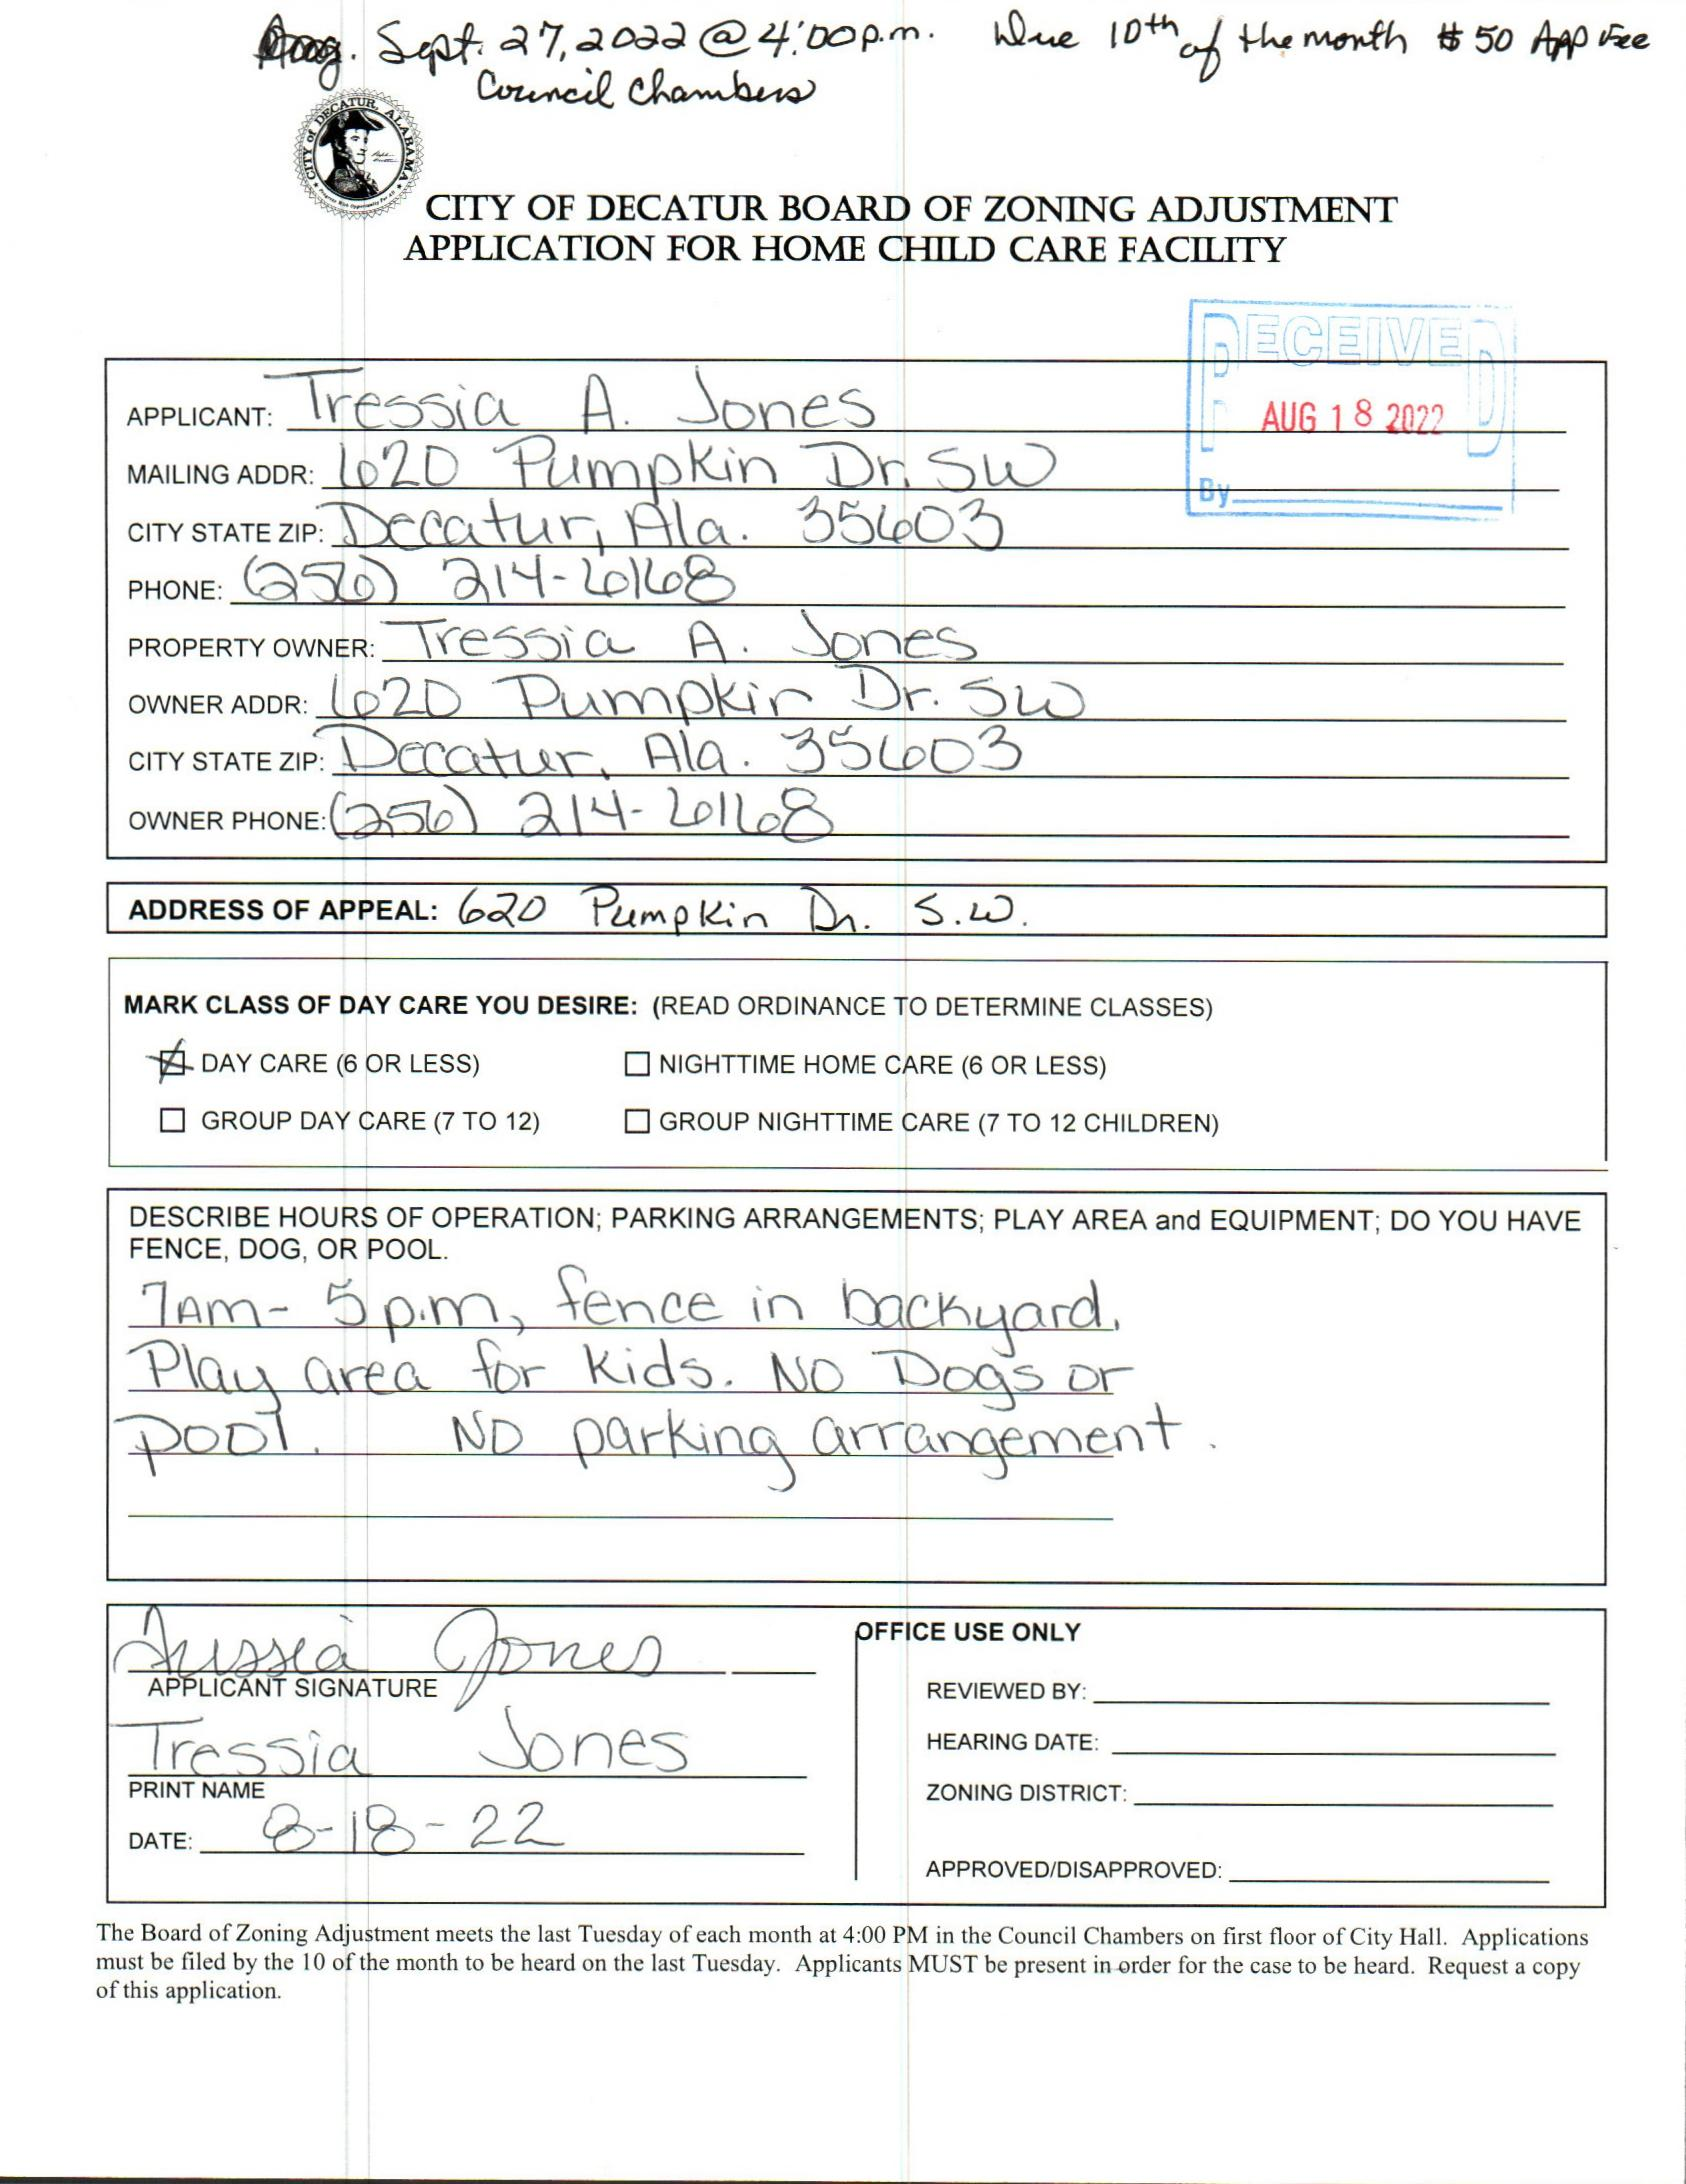 Sept. 27, 2022 @ 4:00 p.m. Due 10th of the month $50 App Fee
Council Chambers
CITY of DECATUR, ALABAMA
CITY OF DECATUR BOARD OF ZONING ADJUSTMENT
APPLICATION FOR HOME CHILD CARE FACILITY
RECEIVED
AUG 18 2022
By
APPLICANT: Tressia A. Jones
MAILING ADDR: 620 Pumpkin Dr. SW
CITY STATE ZIP: Decatur, Ala. 35603
PHONE: (256) 214-6168
PROPERTY OWNER: Tressia A. Jones
OWNER ADDR: 620 Pumpkin Dr. SW
CITY STATE ZIP: Decatur, Ala. 35603
OWNER PHONE: (256) 214-6168
ADDRESS OF APPEAL: 620 Pumpkin Dr. S.W.
MARK CLASS OF DAY CARE YOU DESIRE: (READ ORDINANCE TO DETERMINE CLASSES)
DAY CARE (6 OR LESS) NIGHTTIME HOME CARE (6 OR LESS)
GROUP DAY CARE (7 TO 12) GROUP NIGHTTIME CARE (7 TO 12 CHILDREN)
DESCRIBE HOURS OF OPERATION; PARKING ARRANGEMENTS; PLAY AREA and EQUIPMENT; DO YOU HAVE
FENCE, DOG, OR POOL.
7Am- 5p.m, fence in backyard.
Play area for kids. NO Dogs or
pool. NO parking arrangement.
Tressia Jones
APPLICANT SIGNATURE
Tressia Jones
PRINT NAME
DATE: 8-18-22
OFFICE USE ONLY
REVIEWED BY:
HEARING DATE:
ZONING DISTRICT:
APPROVED/DISAPPROVED:
The Board of Zoning Adjustment meets the last Tuesday of each month at 4:00 PM in the Council Chambers on first floor of City Hall. Applications
must be filed by the 10 of the month to be heard on the last Tuesday. Applicants MUST be present in order for the case to be heard. Request a copy
of this application.